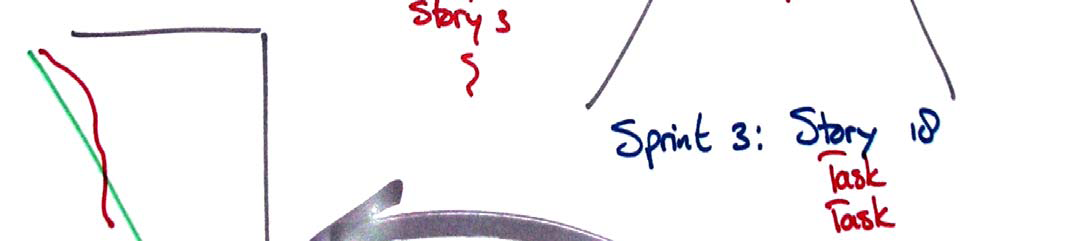 Story 3
Sprint 3: Story 18
Task
Task